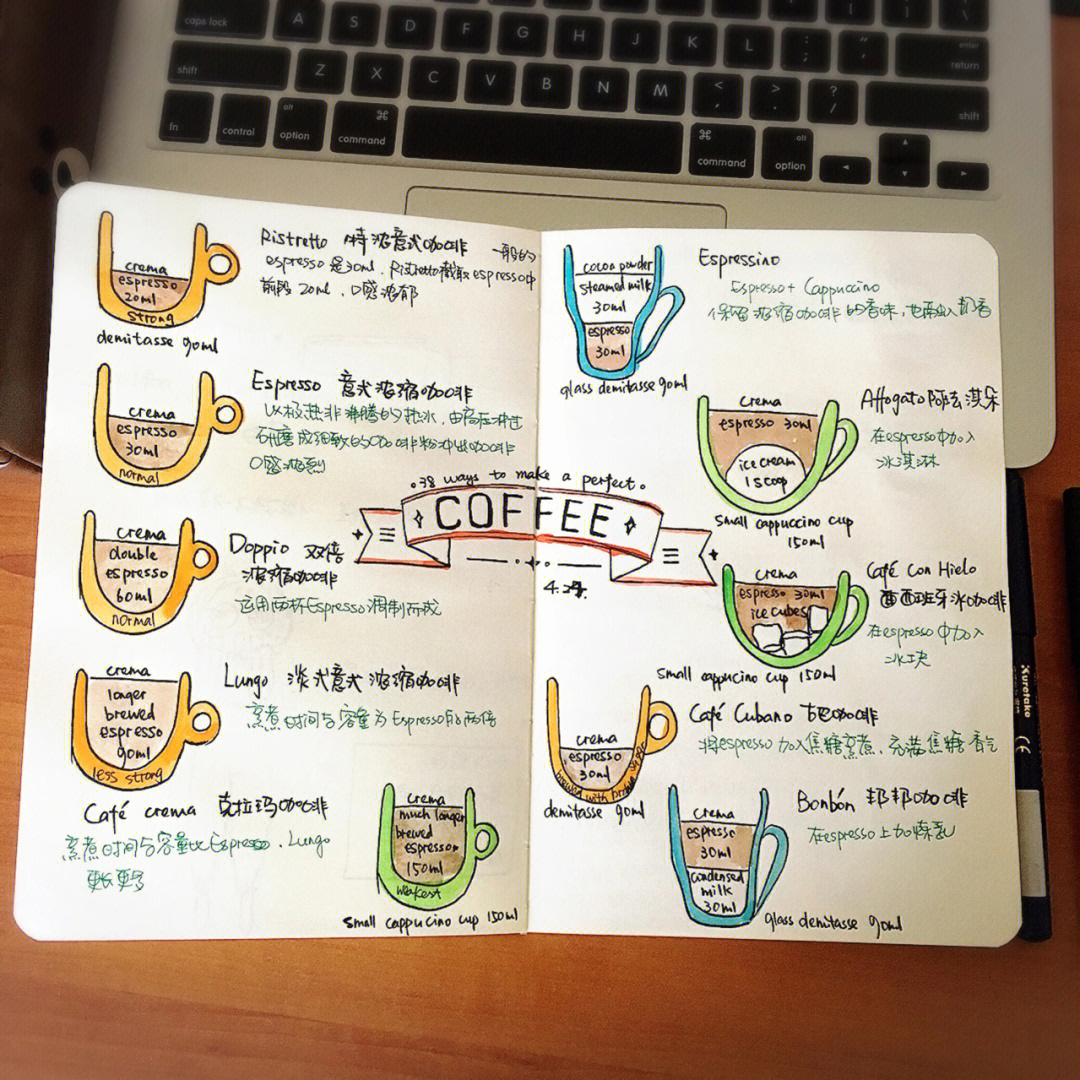 caps lock
A
S
D
F
G
H
J
K
L
:
;
"
'
enter
return
shift
Z
X
C
V
B
N
M
<
,
>
.
?
/
shift
fn
control
alt
option
⌘
command
⌘
command
alt
option
Ristretto 特浓意式咖啡 一般的
espresso是30ml，Ristretto截取espresso中
前段20ml，口感浓郁
crema
espresso
20ml
strong
demitasse 90ml
Espresso 意式浓缩咖啡
以极热非沸腾的热水，由高压冲过
研磨成细致的咖啡粉冲出咖啡
口感浓烈
crema
espresso
30ml
normal
Doppio 双倍
浓缩咖啡
运用两杯Espresso调制而成
crema
double
espresso
60ml
normal
Lungo 淡式意式浓缩咖啡
烹煮时间与容量为Espresso的两倍
crema
longer
brewed
espresso
90ml
less strong
Café crema 克拉玛咖啡
烹煮时间与容量比Espresso、Lungo
更长更多
crema
much longer
brewed
espresson
150ml
weakest
small cappucino cup 150ml
.38 ways to make a perfect.
COFFEE
Espressino
Espresso + Cappuccino
保留浓缩咖啡的香味，也融入奶香
cocoa powder
steamed milk
30ml
espresso
30ml
glass demitasse 90ml
Affogato 阿法淇朵
在espresso中加入
冰淇淋
crema
espresso 30ml
ice cream
1 scoop
small cappuccino cup
150ml
Café Con Hielo
西班牙冰咖啡
在espresso中加入
冰块
crema
espresso 30ml
ice cubes
small cappuccino cup 150ml
Café Cubano 古巴咖啡
将espresso加入焦糖烹煮，充满焦糖香气
crema
espresso
30ml
brewed with brown sugar
demitasse 90ml
Bonbón 邦邦咖啡
在espresso上加炼乳
crema
espresso
30ml
condensed
milk
30ml
glass demitasse 90ml
Kuretake
CE